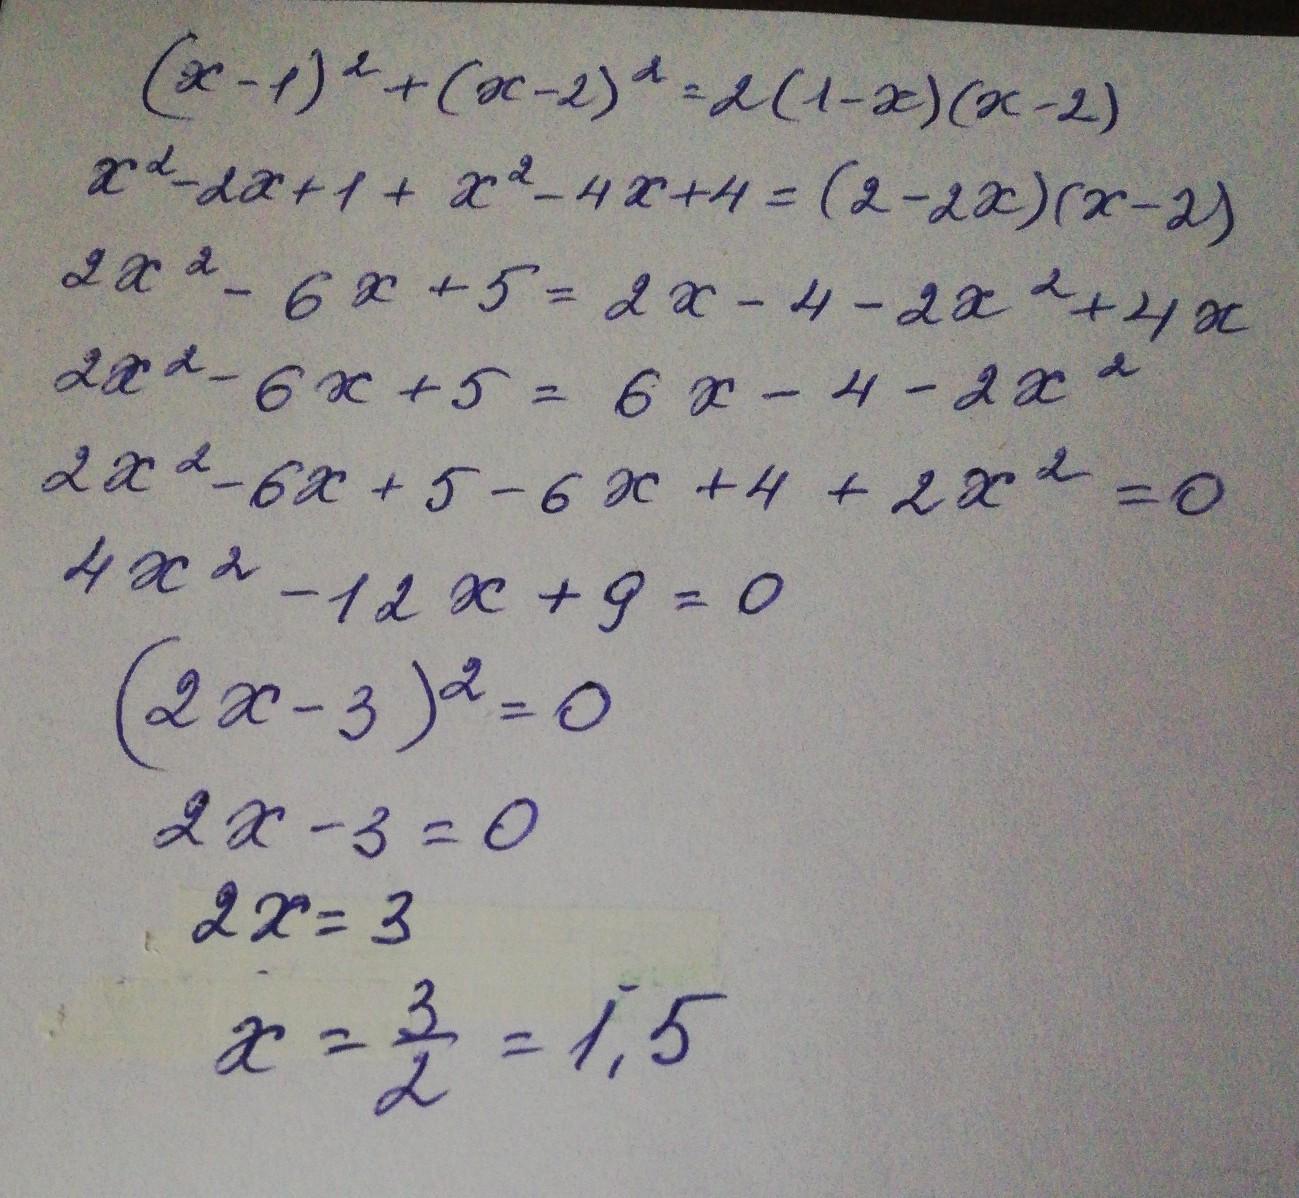 (x-1)² + (x-2)² = 2(1-x)(x-2)
x² - 2x + 1 + x² - 4x + 4 = (2-2x)(x-2)
2x² - 6x + 5 = 2x - 4 - 2x² + 4x
2x² - 6x + 5 = 6x - 4 - 2x²
2x² - 6x + 5 - 6x + 4 + 2x² = 0
4x² - 12x + 9 = 0
(2x-3)² = 0
2x - 3 = 0
2x = 3
x = 3/2 = 1,5